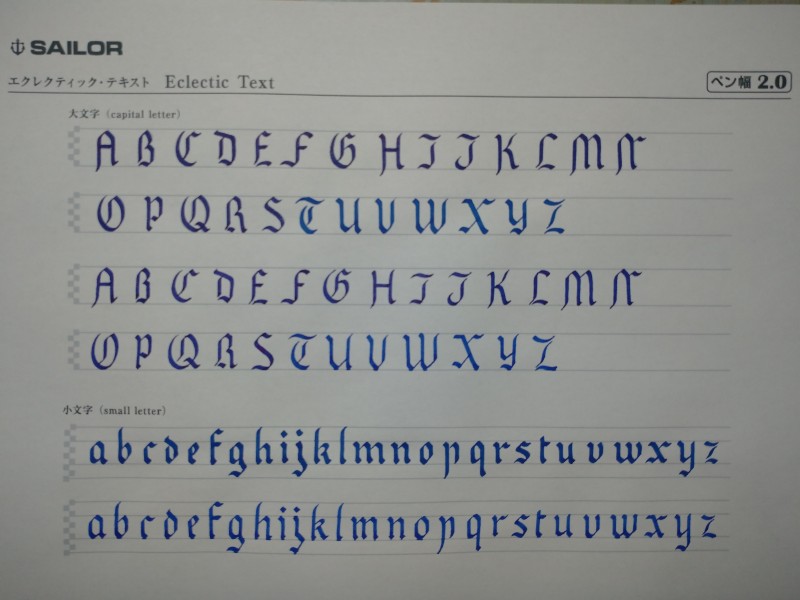 SAILOR
エクレクティック・テキスト Eclectic Text ペン幅 2.0
大文字 (capital letter)
A B C D E F G H I J K L M N
O P Q R S T U V W X Y Z
A B C D E F G H I J K L M N
O P Q R S T U V W X Y Z
小文字 (small letter)
a b c d e f g h i j k l m n o p q r s t u v w x y z
a b c d e f g h i j k l m n o p q r s t u v w x y z